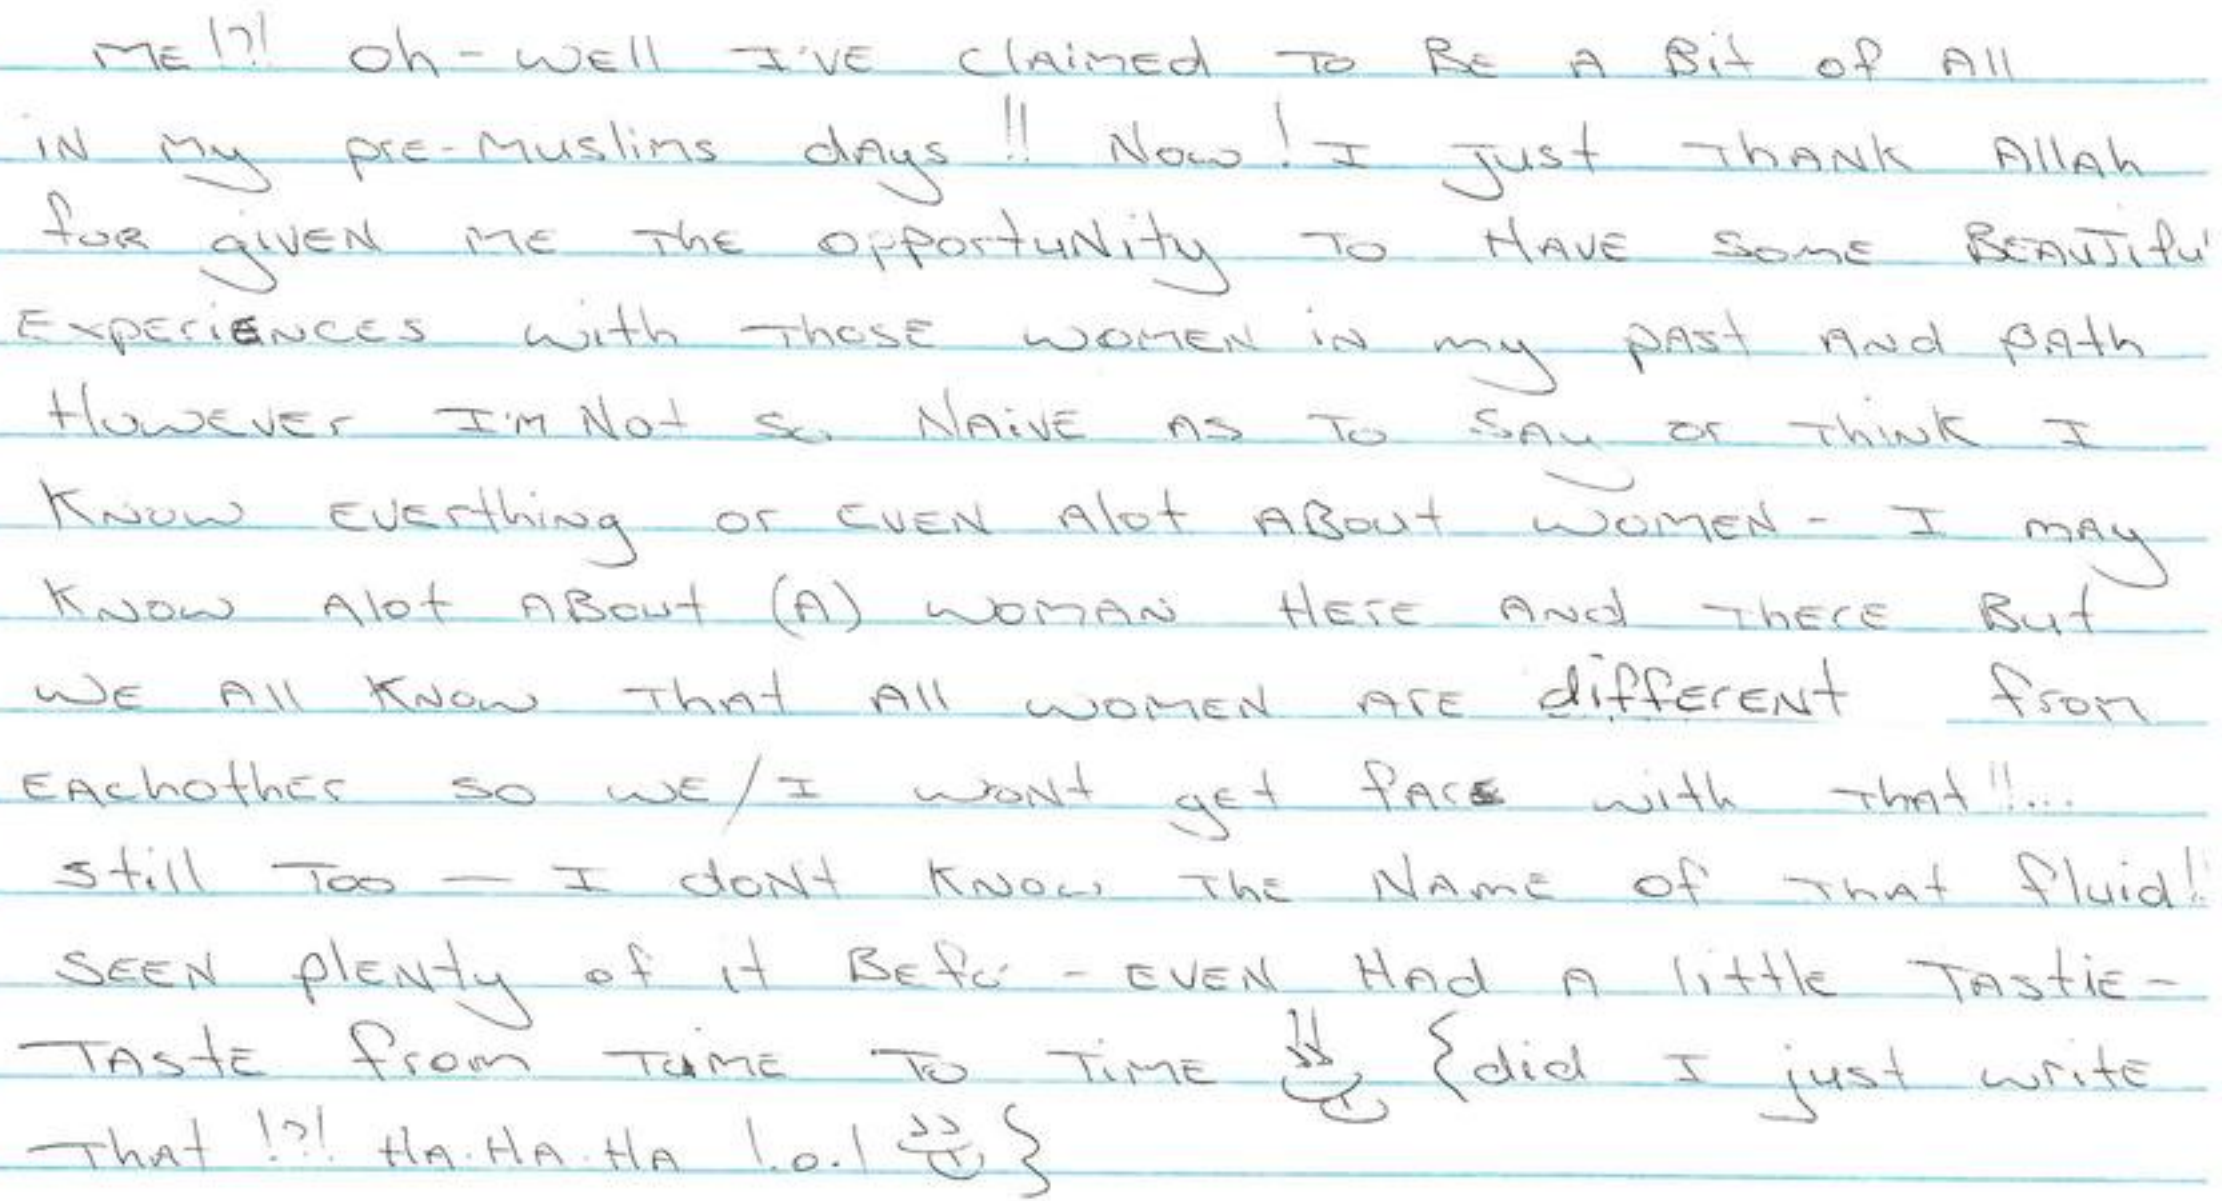 ME!?! Oh - well I'VE Claimed To Be A Bit of All
in my pre-muslims days!! Now! I just Thank Allah
for given me the opportunity To Have some Beautiful
Experiences with those women in my past and path
However I'm Not so Naive as To say or Think I
Know everthing or even alot about women - I may
Know alot about (A) woman Here and There But
we all Know That all women are different from
eachother so we/I wont get face with that!!...
still Too — I dont Know The Name of That fluid!!
seen plenty of it Befo - even Had a little Tastie-
Taste from Time To Time {did I just write
That!?! HA.HA.HA l.o.l }